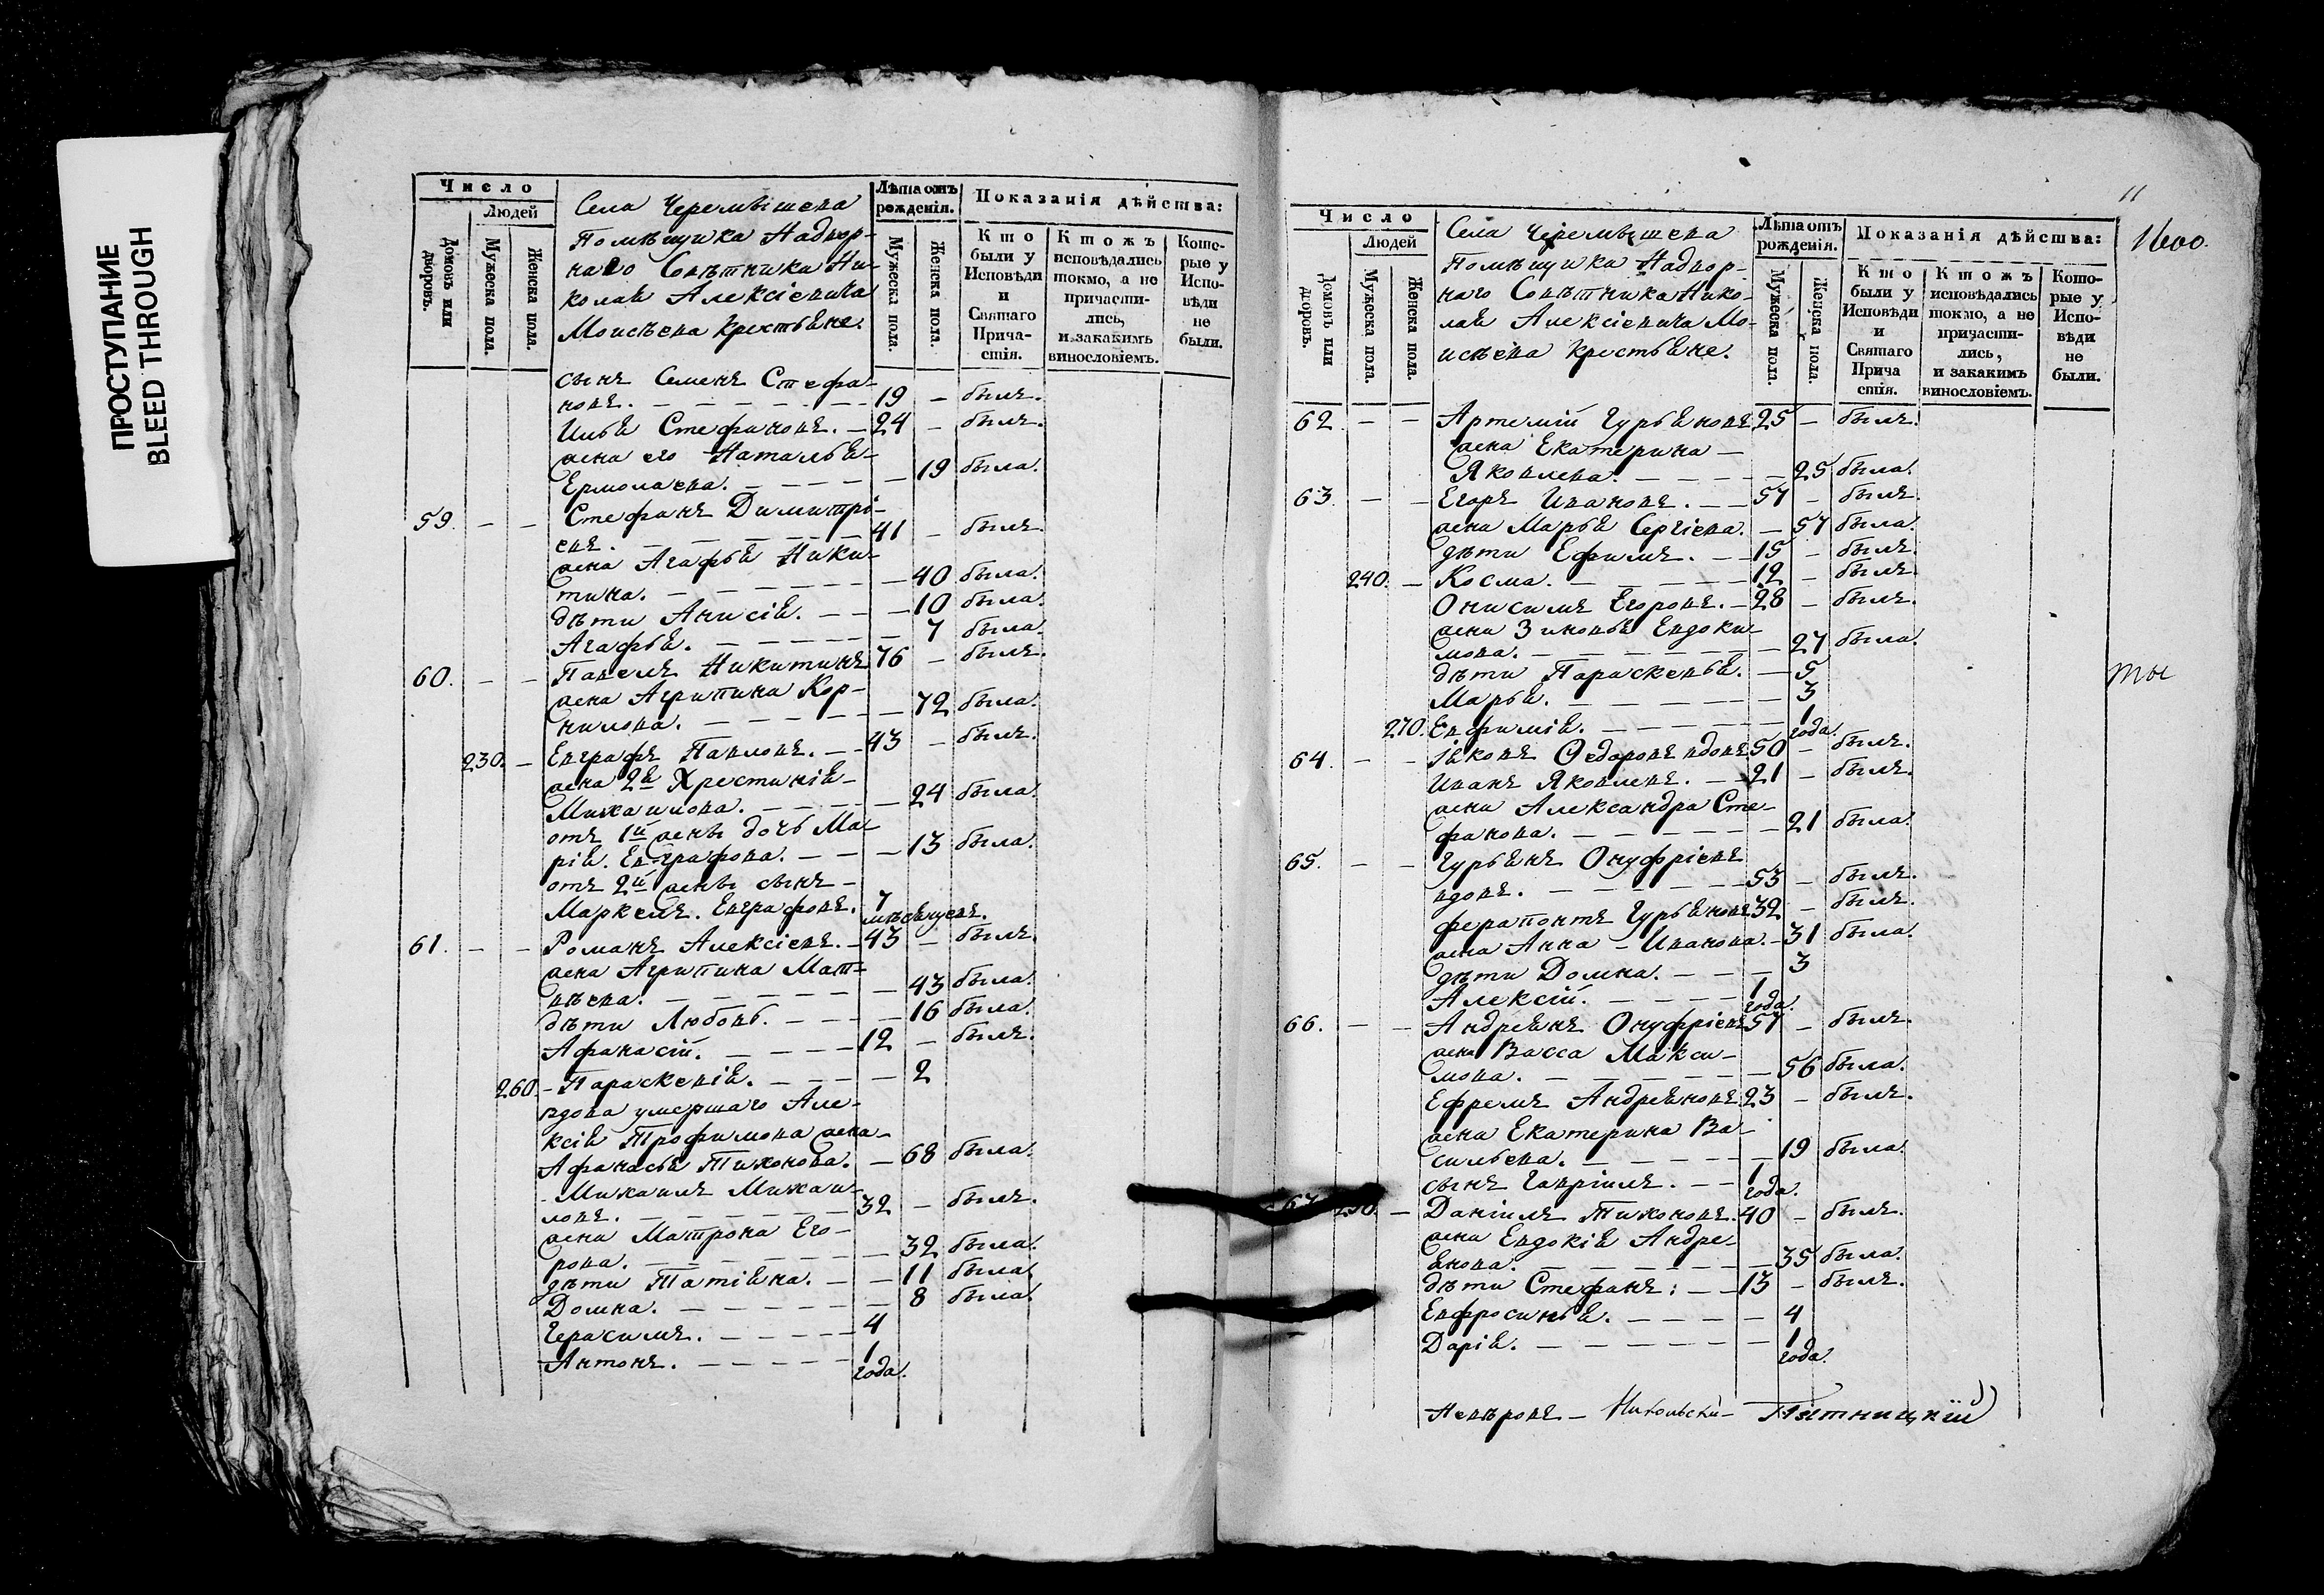 ПРОСТУПАНИЕ
BLEED THROUGH
Число
Людей
Домовъ или дворовъ.
Мужеска пола.
Женска пола.
Села Черемышева
Помѣщика Надвор-
наго Совѣтника Ни-
колая Алексіевича
Моисѣева крестьяне.
Лѣта отъ рожденія.
Мужеска пола.
Женска пола.
Показанія дѣйства:
Кто были у Исповѣди и Святаго Прича-стія.
Ктожъ исповѣдались токмо, а не причасти-лись, и закакимъ винословіемъ.
Кото-рые у Испо-вѣди не были.
сынъ Семенъ Стефа-
новъ. 19 – былъ.
Илья Стефановъ. – 24 – былъ.
жена его Наталья
Ермолаева. – 19 была.
59. – – Стефанъ Димитрі-
евъ. 41 – былъ.
жена Агафья Ники-
тина. – 40 была.
дѣти Анисія. – 10 была.
Агафья. – 7 была.
60. – – Павелъ Никитинъ 76 – былъ.
жена Агрипина Кор-
нилова. – 72 была.
230. – Евграфъ Павловъ. – 43 – былъ.
жена 2я Хрестинія
Михаилова. – 24 была.
отъ 1й жены дочь Ма-
рія Евграфова. – 13 была.
отъ 2й жены сынъ –
Маркелъ Евграфовъ. 7 мѣсяцевъ.
61. – – Романъ Алексіевъ. – 43 – былъ.
жена Агрипина Мат-
вѣева. – 43 была.
дѣти Любовь. – 16 была.
Афанасій. – 12 – былъ.
260. – Параскевія. – 2
вдова умершаго Але-
ксія Трофимова жена
Афанасья Тихонова. – 68 была.
Михаилъ Михаи-
ловъ. 32 – былъ.
жена Матрона Его-
рова. – 32 была.
дѣти Татіяна. – 11 была.
Домна. – 8 была.
Герасимъ. – 4
Антонъ. – 1 года.
11
1600.
Число
Людей
Домовъ или дворовъ.
Мужеска пола.
Женска пола.
Села Черемышева
Помѣщика Надвор-
наго Совѣтника Нико-
лая Алексіевича Мо-
исѣева крестьяне.
Лѣта отъ рожденія.
Мужеска пола.
Женска пола.
Показанія дѣйства:
Кто были у Исповѣди и Святаго Прича стія.
Ктожъ исповѣдались токмо, а не причасти-лись, и закакимъ винословіемъ.
Кото-рые у Испо-вѣди не были.
62. – – Артемій Гурьяновъ 25 – былъ.
жена Екатерина –
Яковлева. – 25 была.
63. – – Егоръ Ивановъ. – 57 – былъ.
жена Марья Сергіева. – 57 была.
дѣти Ефимъ. – 15 – былъ.
240. – Косма. – 12 – былъ.
Онисимъ Егоровъ. – 28 – былъ.
жена Зиновья Евдоки-
мова. – 27 была.
дѣти Параскевья. – 5
Марья. – 3
270. Евфимія. – 1 года.
64. – – Іяковъ Федоровъ вдовъ 50 – былъ.
Иванъ Яковлевъ. – 21 – былъ.
жена Александра Сте-
фанова. – 21 была.
65. – – Гурьянъ Онуфріевъ
вдовъ. – 53 – былъ.
Ферапонтъ Гурьяновъ 32 – былъ.
жена Анна – Иванова. – 31 была.
дѣти Домна. – 3
Алексій. – 1 года.
66. – – Андреянъ Онуфріевъ 57 – былъ.
жена Васса Макси-
мова. – 56 была.
Ефремъ Андреяновъ 23 – былъ.
жена Екатерина Ва-
сильева. – 19 была.
сынъ Гавріилъ. – 1 года.
67. 250. – Даніилъ Тихоновъ. 40 – былъ.
жена Евдокія Андре-
янова. – 35 была.
дѣти Стефанъ: – 13 – былъ.
Евфросинья. – 4
Дарія. – 1 года.
ты
Никольски – Пятницкій